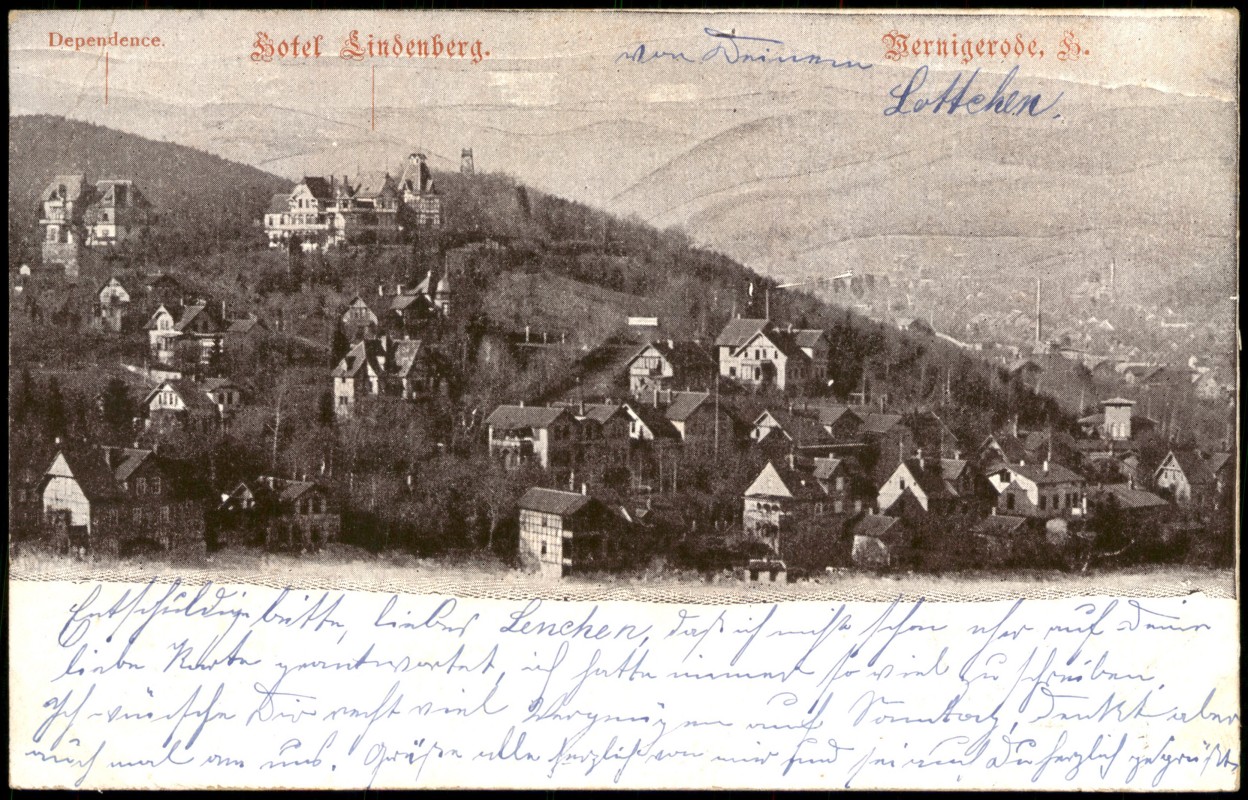 Dependence.
Hotel Lindenberg.
Wernigerode, H.
von Deinem
Lottchen.
Entschuldige bitte, liebes Lenchen, daß ich nicht schon eher auf Deine
liebe Karte geantwortet, ich hatte immer so viel zu schreiben.
Ich wünsche Dir recht viel Vergnügen auch Sonntag, denkt aber
auch mal an uns. Grüße alle herzlich von mir und sei auch Du herzlich gegrüßt